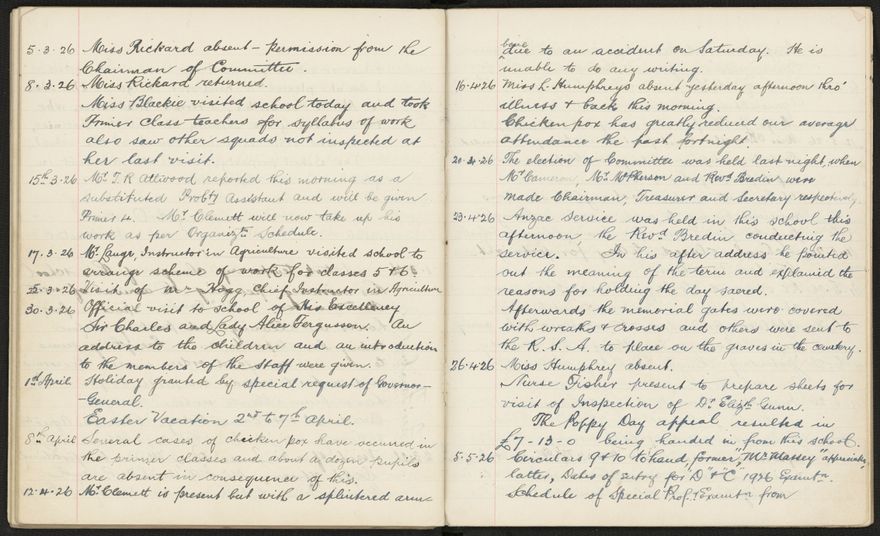 5.3.26 Miss Rickard absent - permission from the
Chairman of Committee.
8.3.26 Miss Rickard returned.
Miss Blackie visited school today and took
Primer Class teachers for syllabus of work
also saw other squads not inspected at
her last visit.
15th.3.26 Mr. T. R. Attwood reported this morning as a
substituted Prob'y Assistant and will be given
Primer 4. Mr. Clemett will now take up his
work as per Organiztn Schedule.
17.3.26 Mr. Lange, Instructor in Agriculture visited school to
arrange scheme of work for classes 5 & 6.
22.3.26 Visit of Mr Hogg, Chief Instructor in Agriculture
30.3.26 Official visit to school of His Excellency
Sir Charles and Lady Alice Fergusson. An
address to the children and an introduction
to the members of the Staff were given.
1st April Holiday granted by special request of Governor-
-General.
Easter Vacation 2nd to 7th April.
8th April Several cases of chicken pox have occurred in
the primer classes and about a dozen pupils
are absent in consequence of this.
12.4.26 Mr. Clemett is present but with a splintered arm-
bone due to an accident on Saturday. He is
unable to do any writing.
16.4.26 Miss L. Humphreys absent yesterday afternoon thro'
illness & back this morning.
Chicken pox has greatly reduced our average
attendance the past fortnight.
20.4.26 The election of Committee was held last night, when
Mr. Cameron, Mr. McPherson and Revd Bredin were
made Chairman, Treasurer and Secretary respectively.
23.4.26 Anzac Service was held in this school this
afternoon, the Revd Bredin conducting the
service. In his after address he pointed
out the meaning of the term and explained the
reasons for holding the day sacred.
Afterwards the memorial gates were covered
with wreaths & crosses and others were sent to
the R.S.A. to place on the graves in the cemetery.
26.4.26 Miss Humphrey absent.
Nurse Fisher present to prepare sheets for
visit of Inspection of Dr. Elizth Gunn.
The Poppy Day appeal resulted in
£7-13-0 being handed in from this school.
5.5.26 Circulars 9 & 10 to hand, former, "Mr Massey"
latter, Dates of entry for "D" & "C" 1926 Examtn.
Schedule of Special Prof. Examtn from